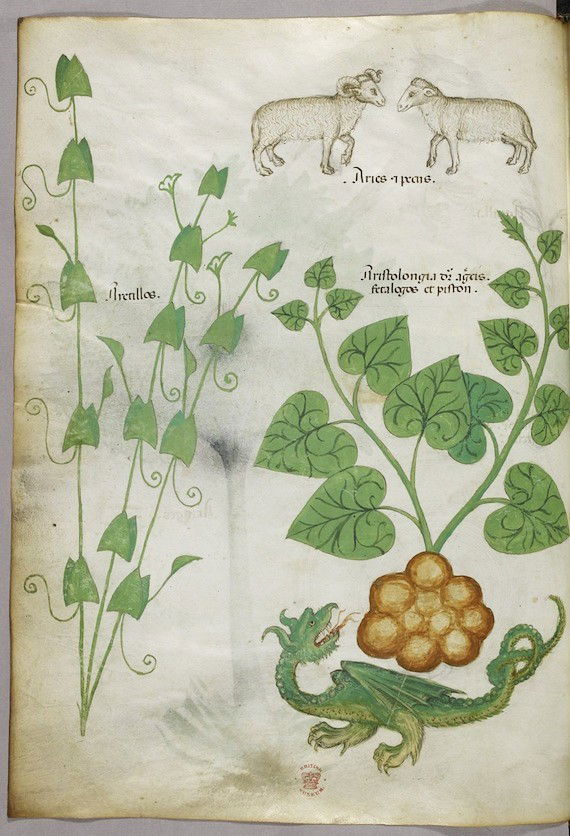 Aries & pecus.
Aretillos.
Aristolongia dr̃ agr̃cis.
fetalogos et piston.
BRITISH
MUSEUM